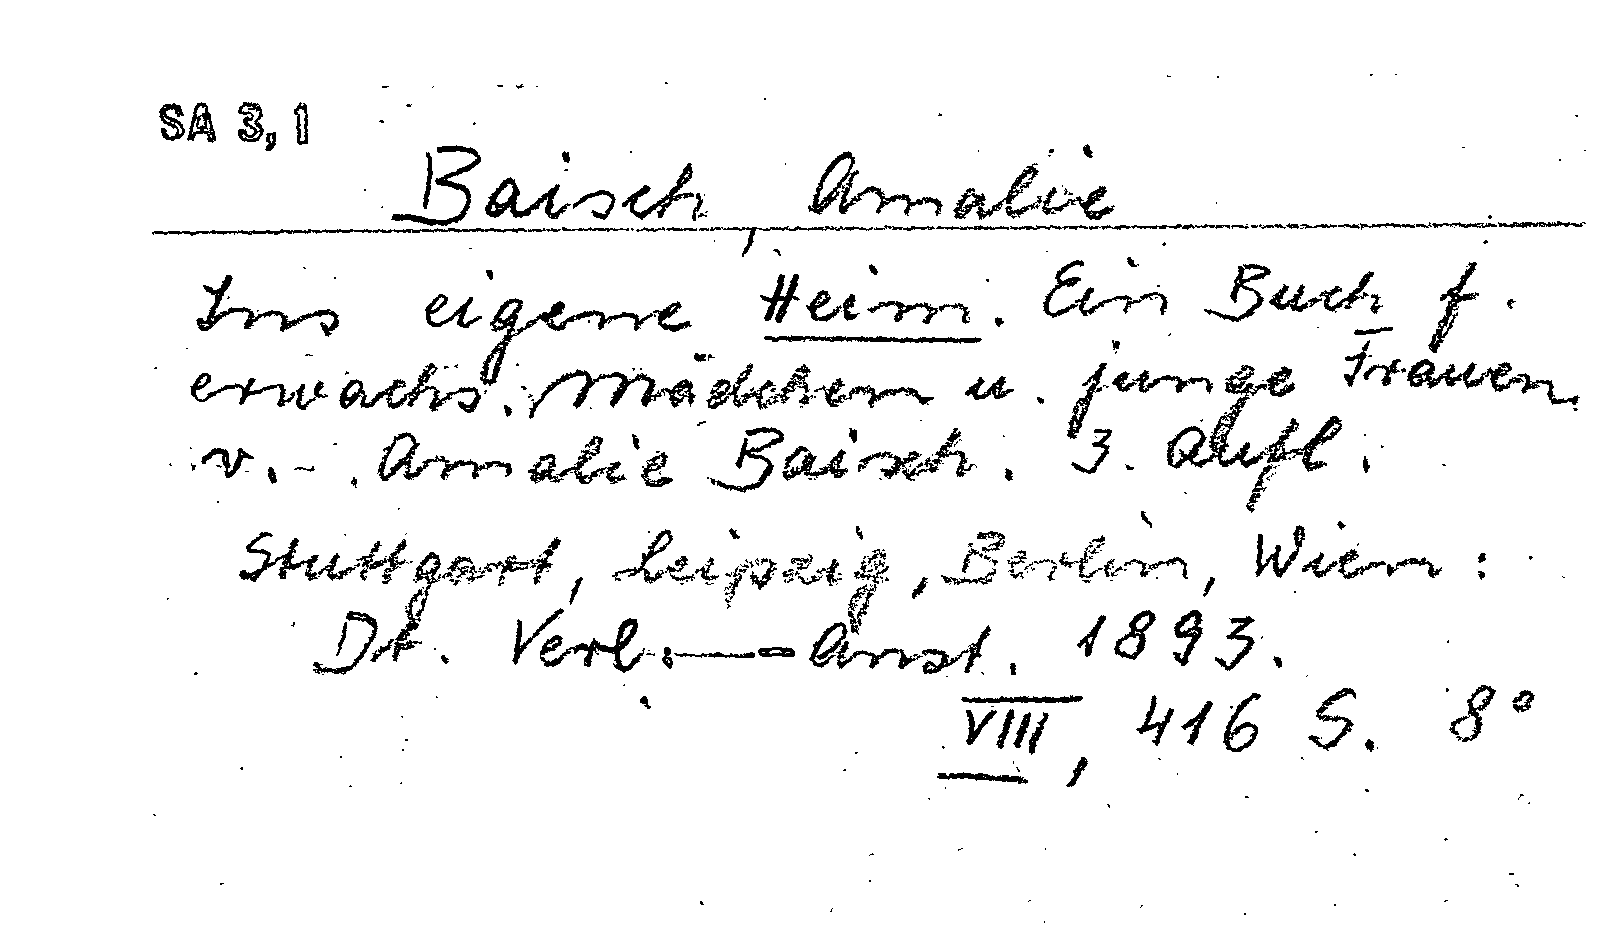 SA 3,1
Baisch, Amalie
Ins eigene Heim. Ein Buch f.
erwachs. Mädchen u. junge Frauen
v. Amalie Baisch. 3. Aufl.
Stuttgart, Leipzig, Berlin, Wien:
Dt. Verl.-Anst. 1893.
VIII, 416 S. 8°